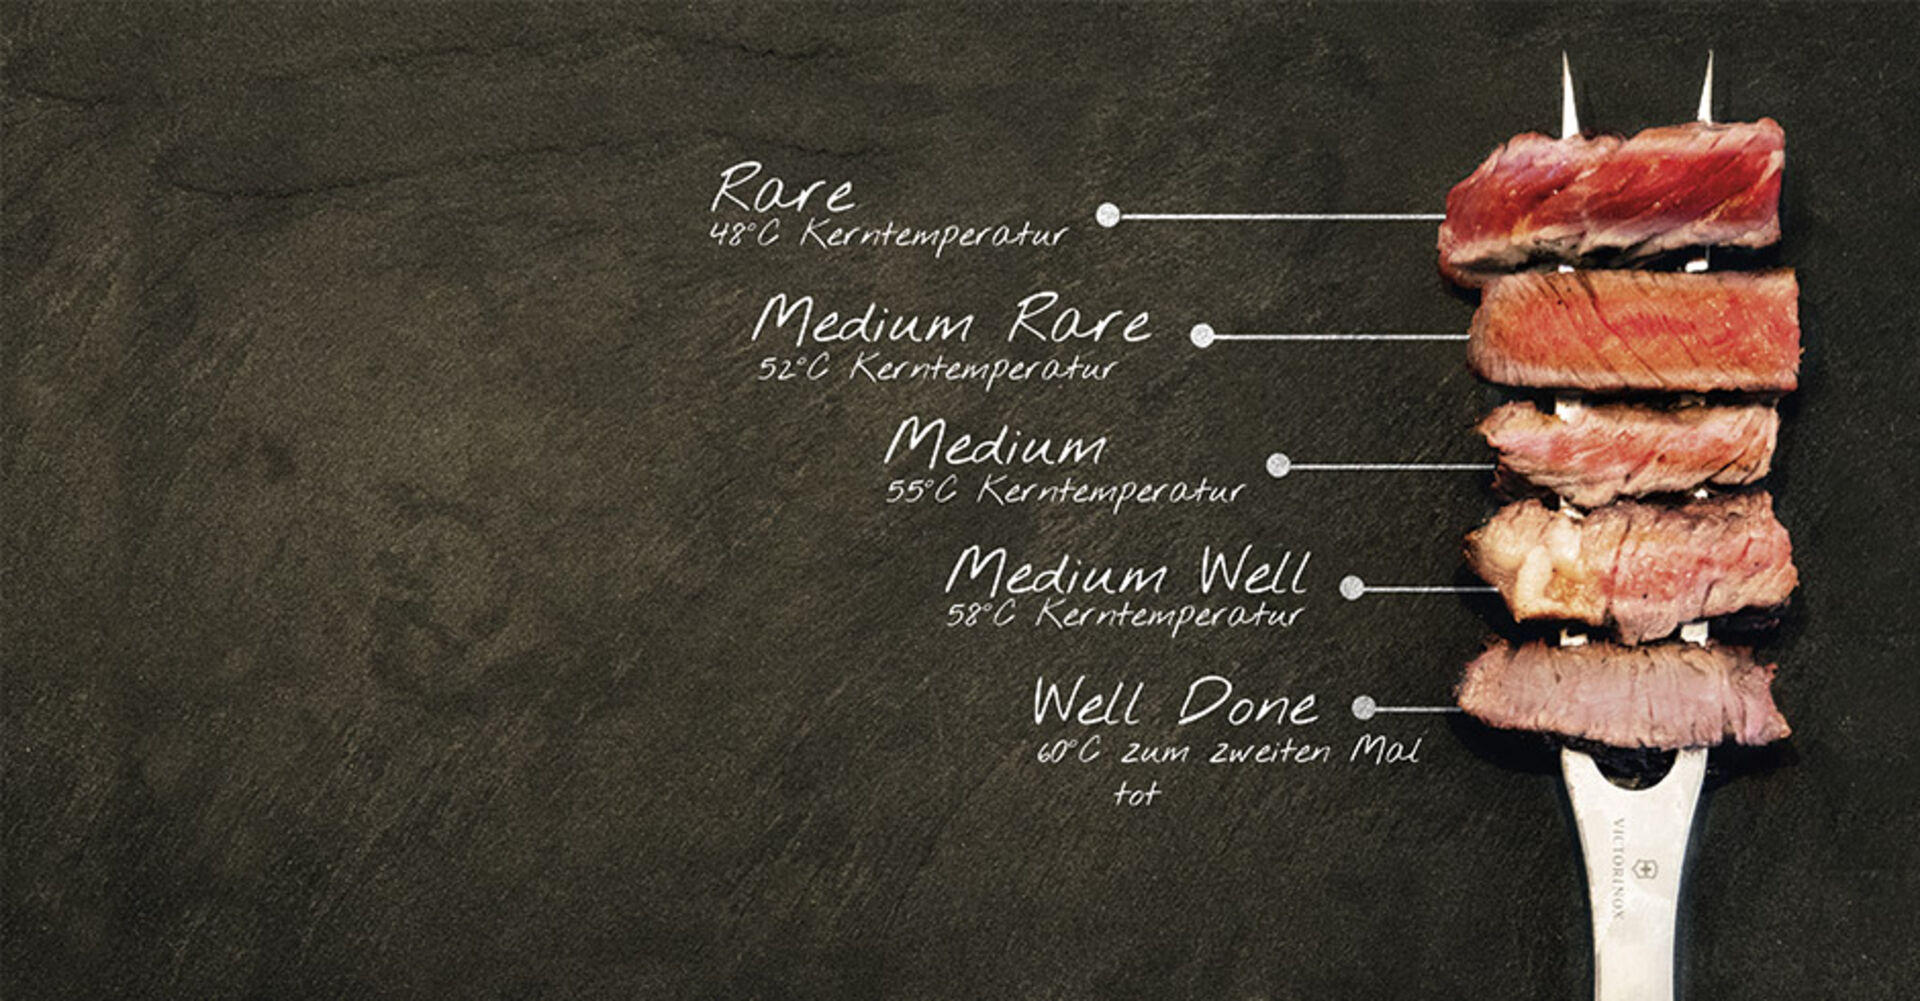 Rare
48°C Kerntemperatur
Medium Rare
52°C Kerntemperatur
Medium
55°C Kerntemperatur
Medium Well
58°C Kerntemperatur
Well Done
60°C zum zweiten Mal
tot
VICTORINOX